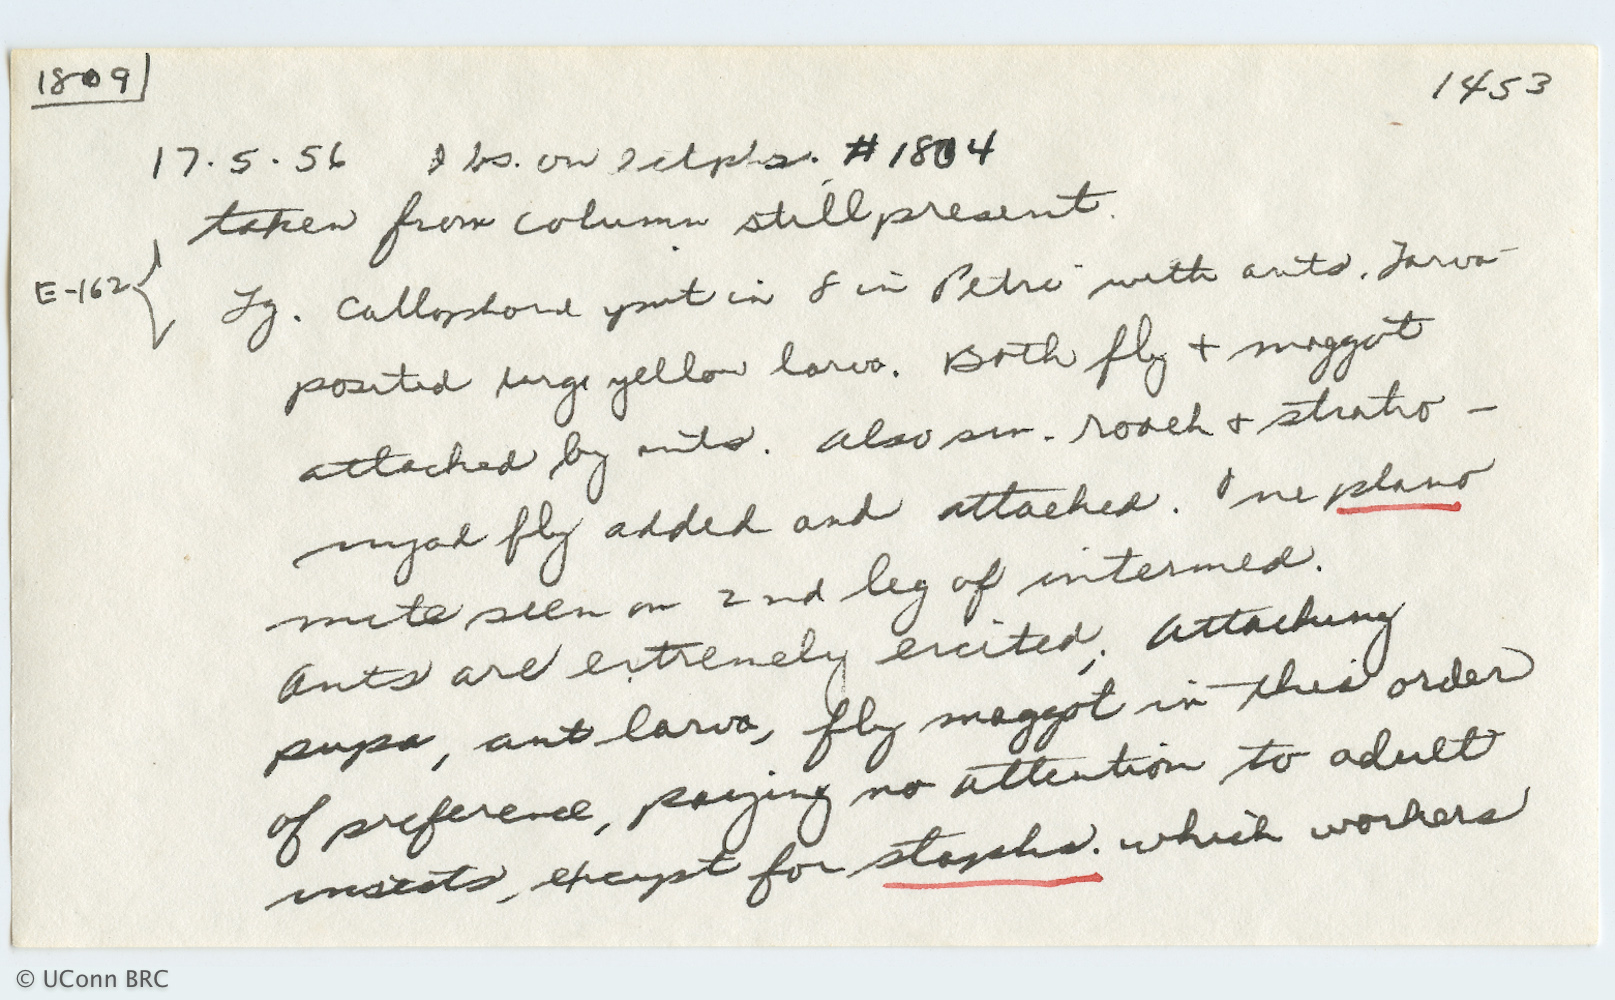 1809
1453
17.5.56 Obs. on #1804
taken from column still present.
E-162
Lg. Calliphorid put in 8 in Petri with ants. Larva-
posited large yellow larva. Both fly + maggot
attacked by ants. Also sm. roach + stratio-
myad fly added and attacked. One plano
mite seen on 2nd leg of intermed.
Ants are extremely excited, attacking
pupa, ant larva, fly maggot in this order
of preference, paying no attention to adult
insects, except for staphs. which workers
© UConn BRC